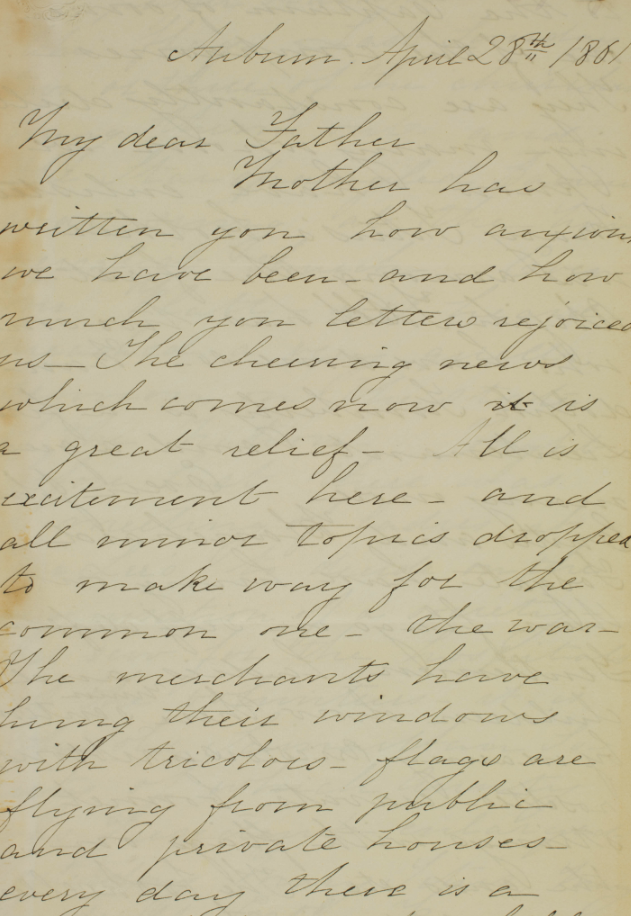 Auburn. April 28th 1861
My dear Father
Mother has
written you how anxious
we have been - and how
much you letters rejoiced
us - The cheering news
which comes now it is
a great relief - All is
excitement here - and
all minor topics dropped
to make way for the
common one - the war -
The merchants have
hung their windows
with tricolors - flags are
flying from public
and private houses -
every day there is a